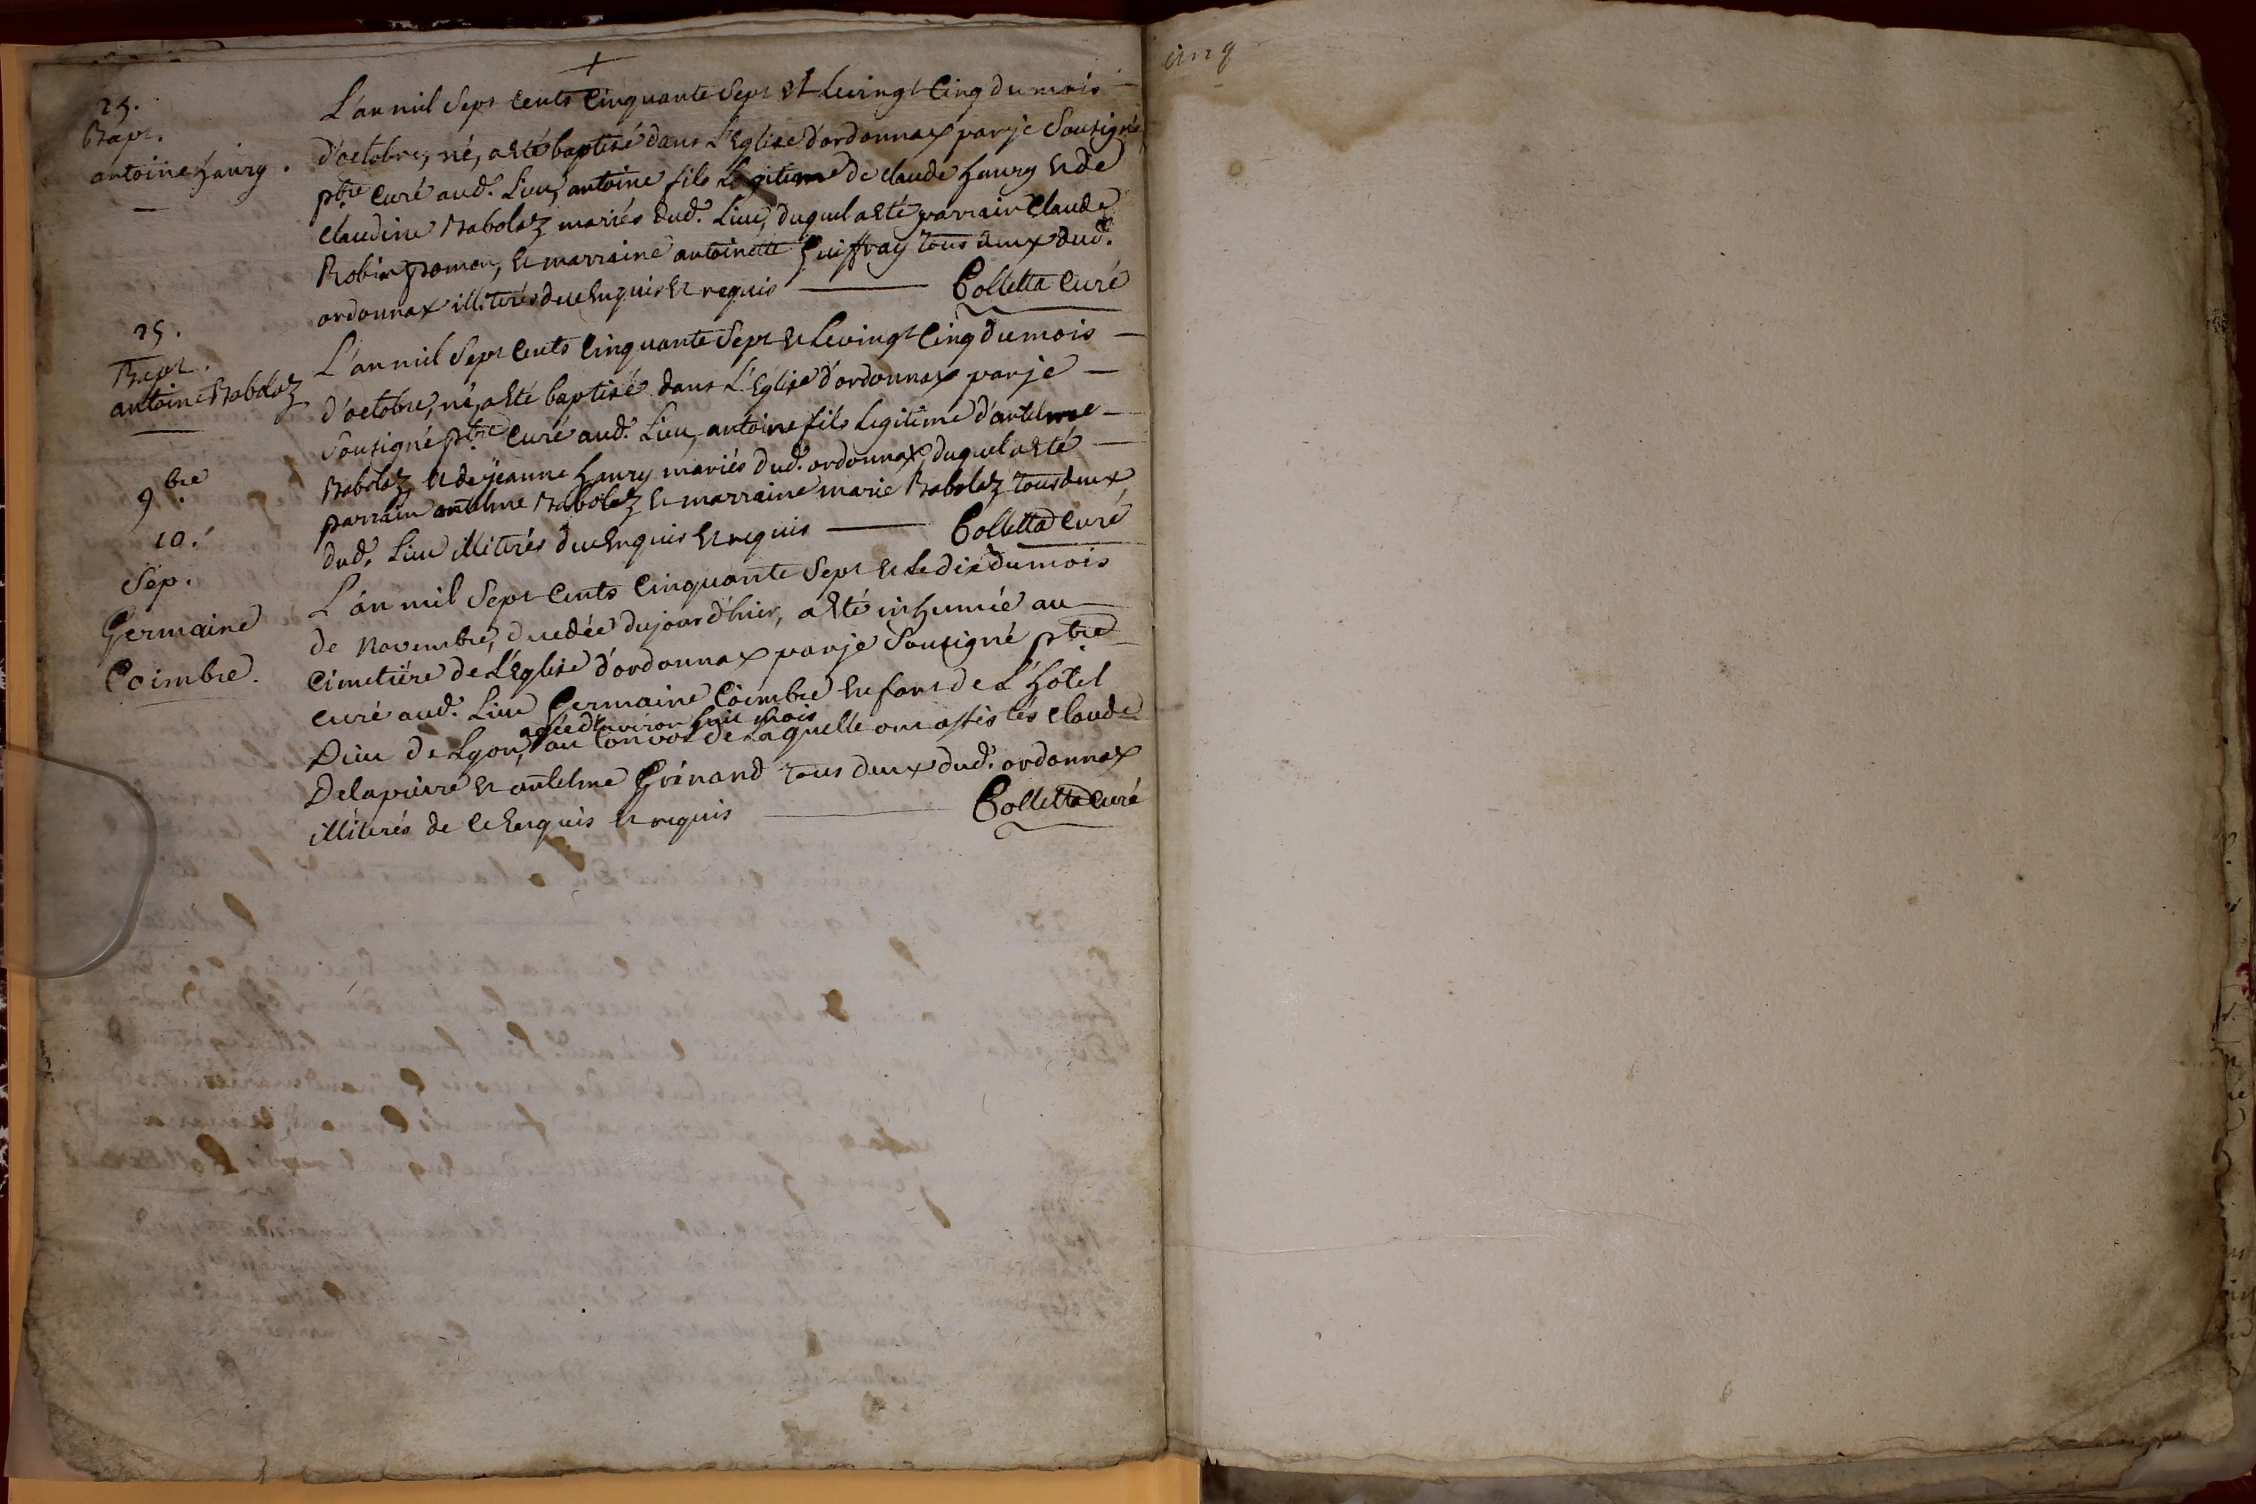 +
25.
Bapt.
antoine haury.
L'an mil Sept Cents Cinquante Sept Et Le vingt Cinq du mois
d'octobre, né, a Eté baptisé dans L'Eglise d'ordonnax par je Soutigné
ptre Curé aud. Lieu, antoine fils Legitime de claude haury Et de
claudine Babolaz mariés dud. Lieu, duquel a Eté parrain Claude
Robin Et marraine antoinette Guiffray tous deux dud.
ordonnax illiterés de ce Enquis Et requis
Colletta Curé
25.
Bapt.
antoine Babolaz
L'an mil Sept Cents Cinquante Sept Et Le vingt Cinq du mois
d'octobre, né, a Eté baptisé dans L'Eglise d'ordonnax par je
Soutigné ptre Curé aud. Lieu, antoine fils Legitime d'antelme
Babolaz Et de jeanne haury mariés dud. ordonnax, duquel a Eté
parrain antelme Babolaz Et marraine marie Babolaz tous deux
dud. Lieu illiterés de ce Enquis Et requis
Colletta Curé
9bre
10.
Sep.
Germaine
Coimbre.
L'an mil Sept Cents Cinquante Sept Et Le dix du mois
de Novembre, decedée du jourd'hier, a Eté inhumée au
Cimetière de L'Eglise d'ordonnax par je Soutigné ptre
Curé aud. Lieu Germaine Coimbre Enfant de L'hôtel
agée d'Environ huit mois
Dieu de Lyon, au Convoi de Laquelle ont assistés Claude
Delapierre Et antelme Grinand tous deux dud. ordonnax
illiterés de ce Enquis Et requis
Colletta Curé
cinq